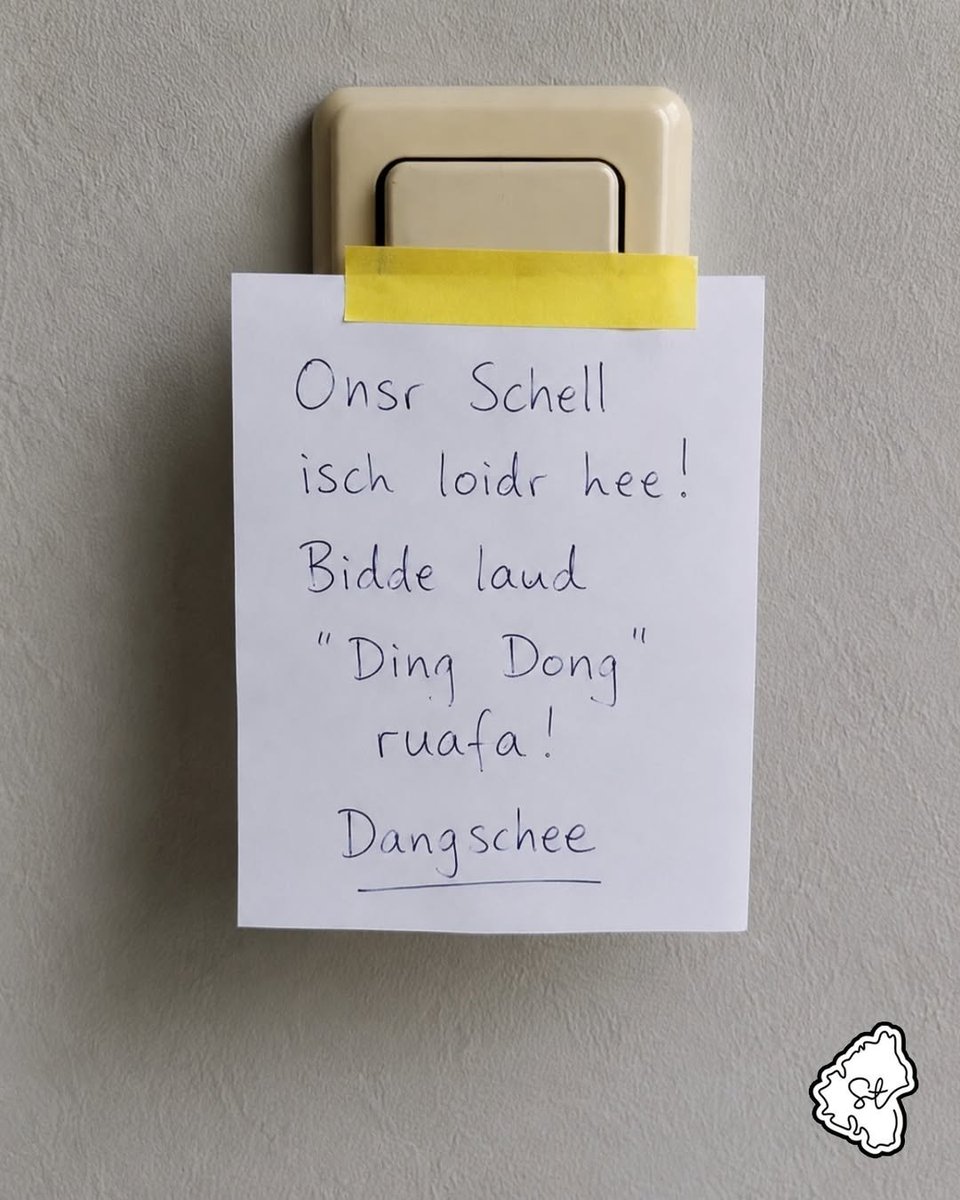 Onsr Schell
isch loidr hee!
Bidde laud
"Ding Dong"
ruafa!
Dangschee
St